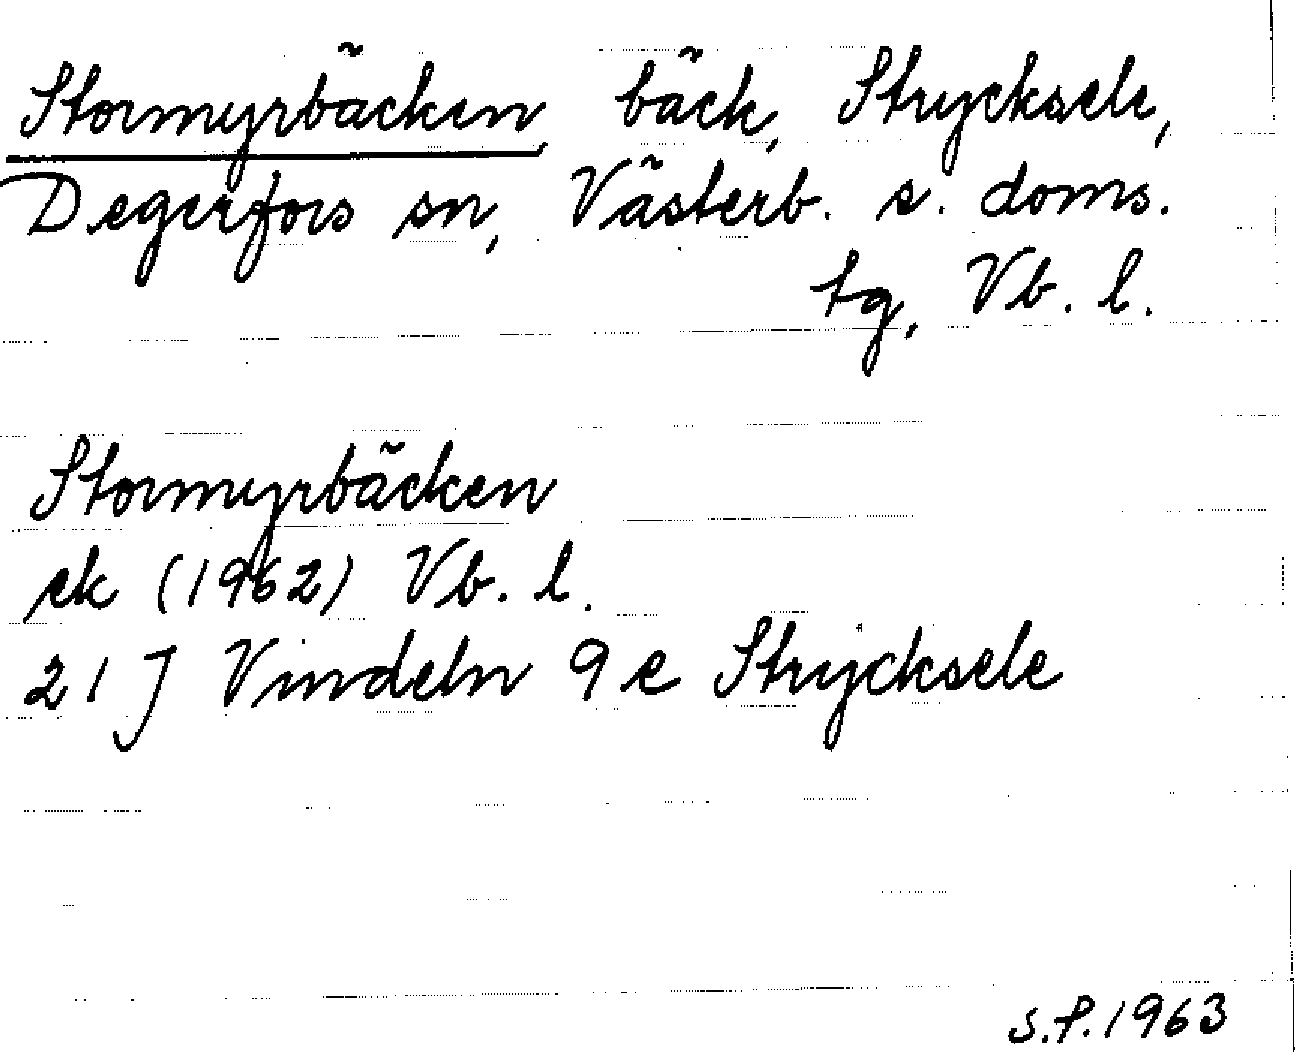 Stormyrbäcken, bäck, Strycksele,
Degerfors sn, Västerb. s. doms.
tg, Vb. l.
Stormyrbäcken
ek (1962) Vb. l.
21 J Vindeln 9 e Strycksele
S.P. 1963